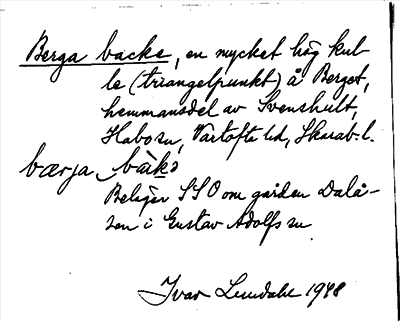 Berga backe, en mycket hög kul-
le (triangelpunkt) å Berget,
hemmansdel av Svenshult,
Habo sn, Vartofta hd, Skarab. l.
bærja bàkə
Beläget SSO om gården Dalå-
sen i Gustav Adolfs sn
Ivar Lundahl 1948